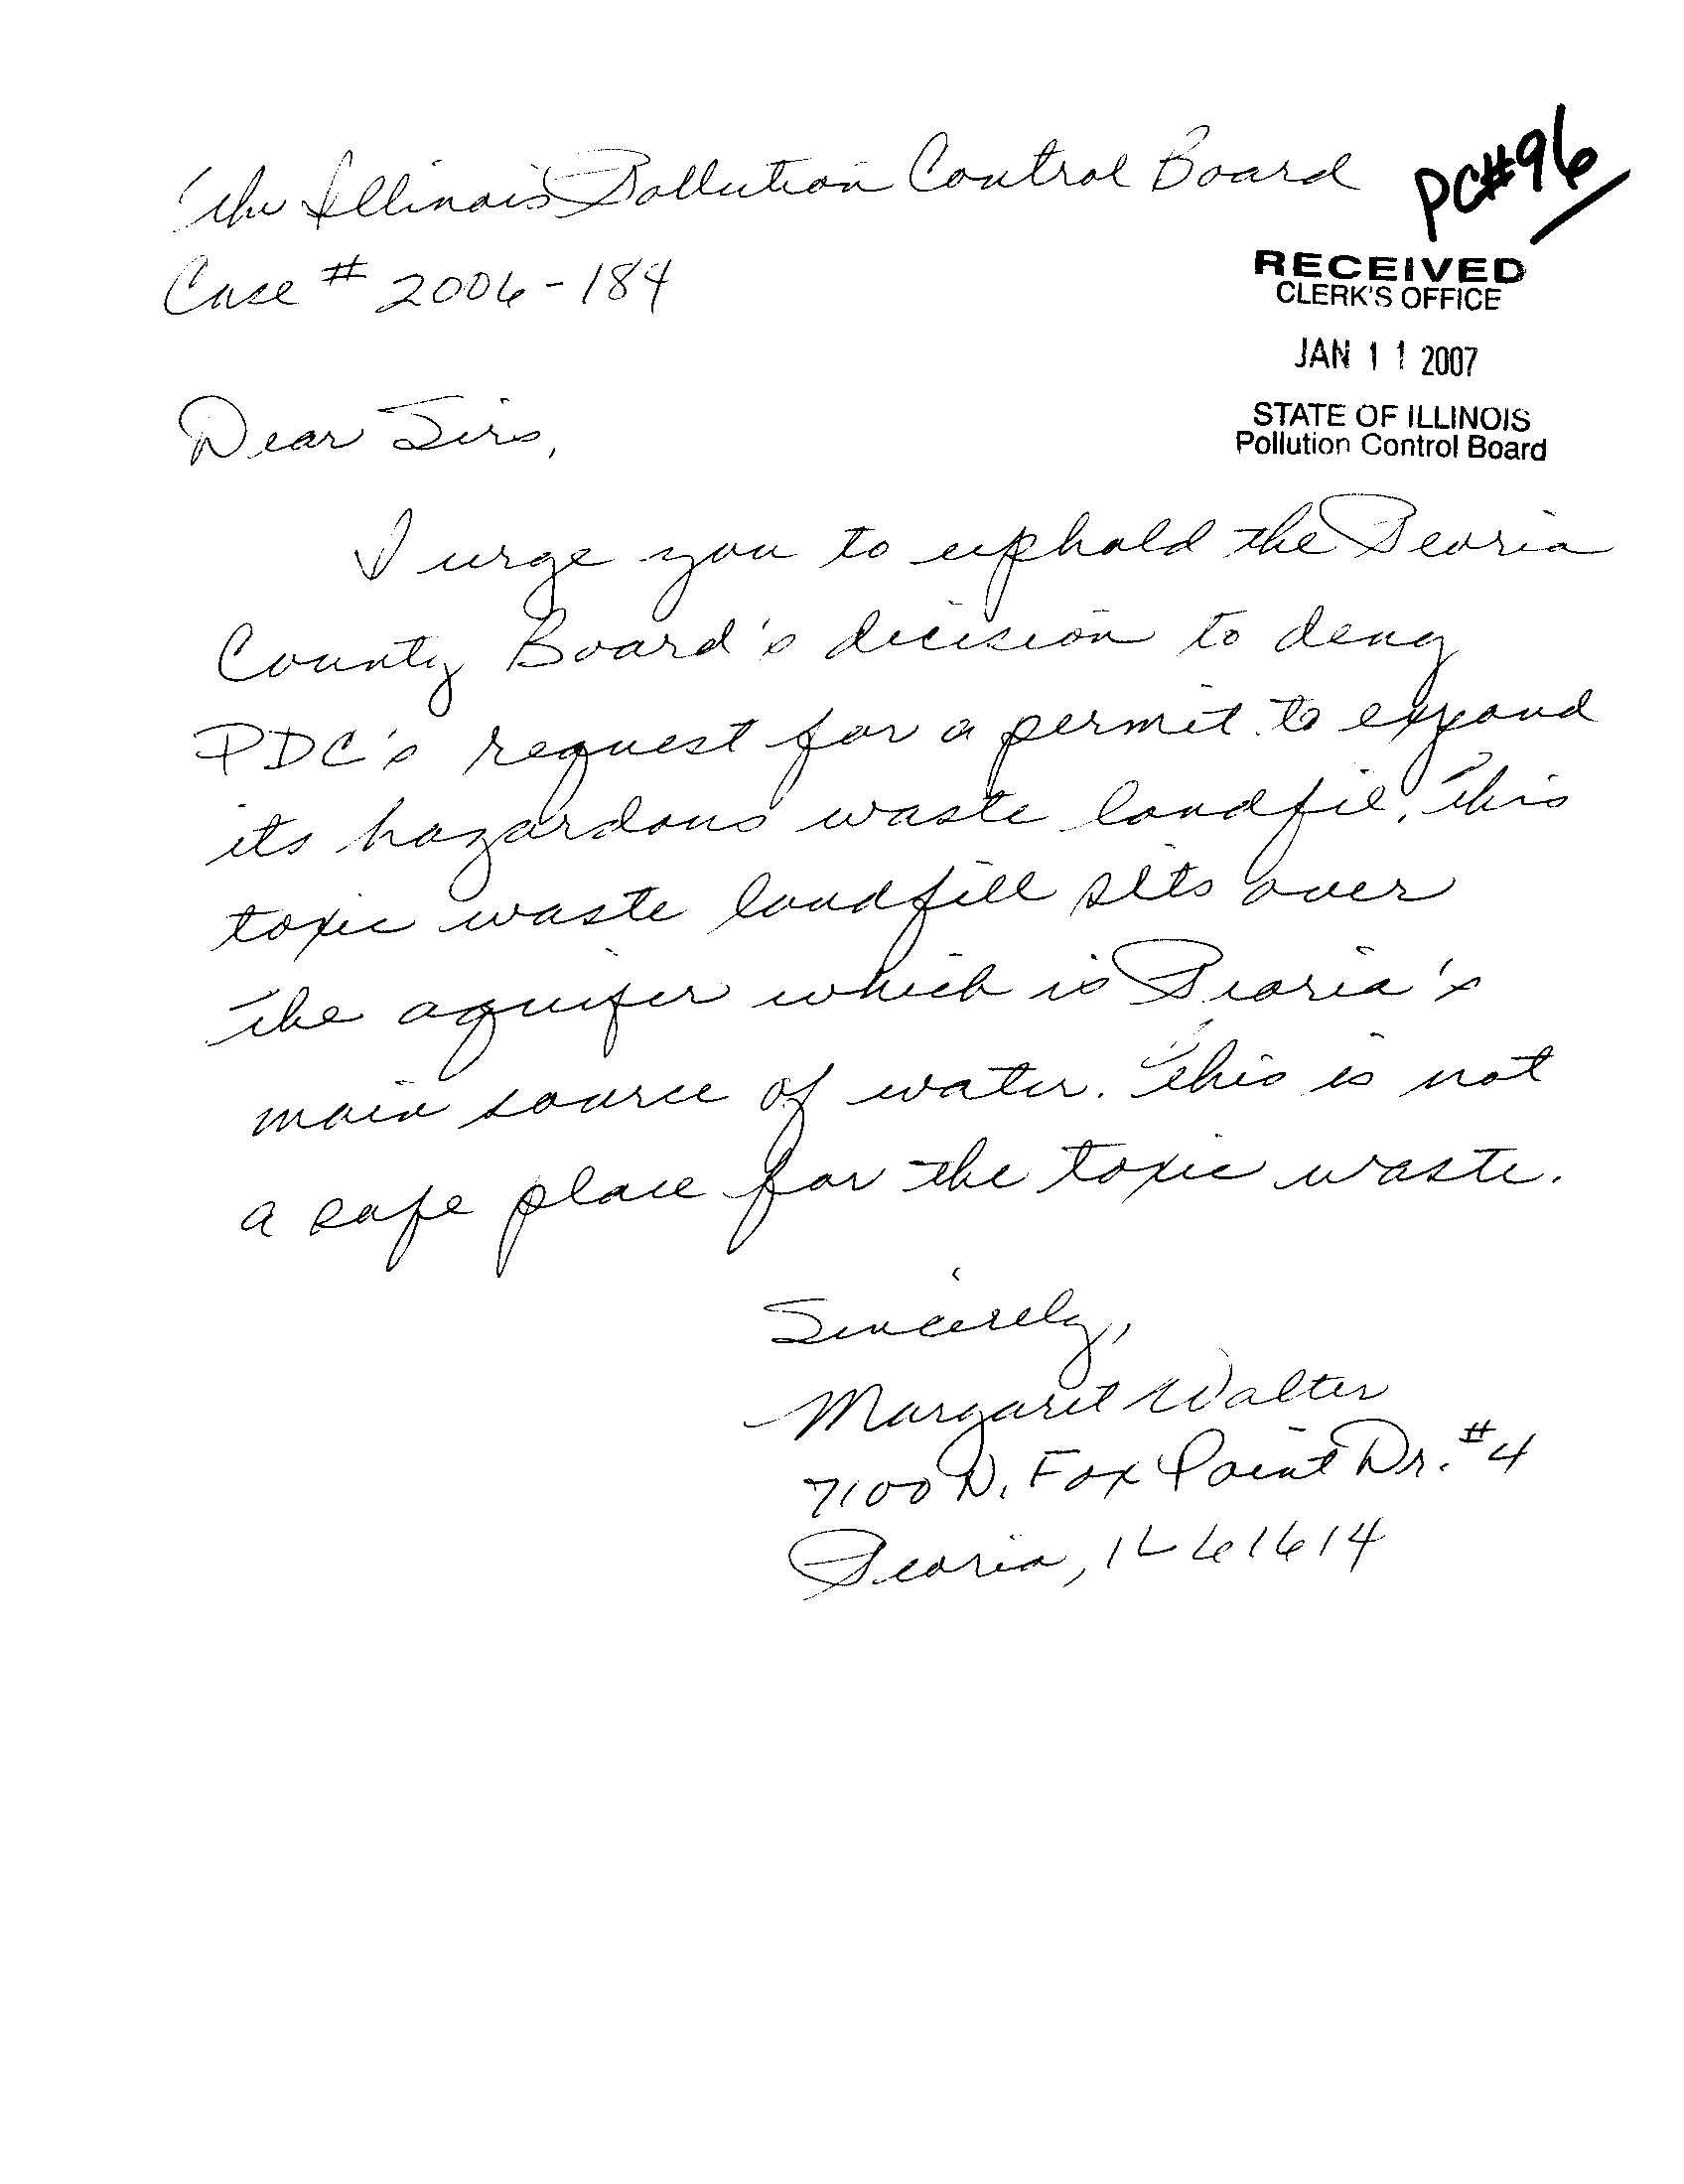 The Illinois Pollution Control Board
PC#96
Case # 2006-184
RECEIVED
CLERK'S OFFICE
JAN 11 2007
STATE OF ILLINOIS
Pollution Control Board
Dear Sirs,
I urge you to uphold the Peoria
County Board's decision to deny
PDC's request for a permit to expand
its hazardous waste landfil. This
toxic waste landfill sits over
the aquifer which is Peoria's
main source of water. This is not
a safe place for the toxic waste.
Sincerely,
Margaret Walter
7100 N. Fox Point Dr. #4
Peoria, IL 61614